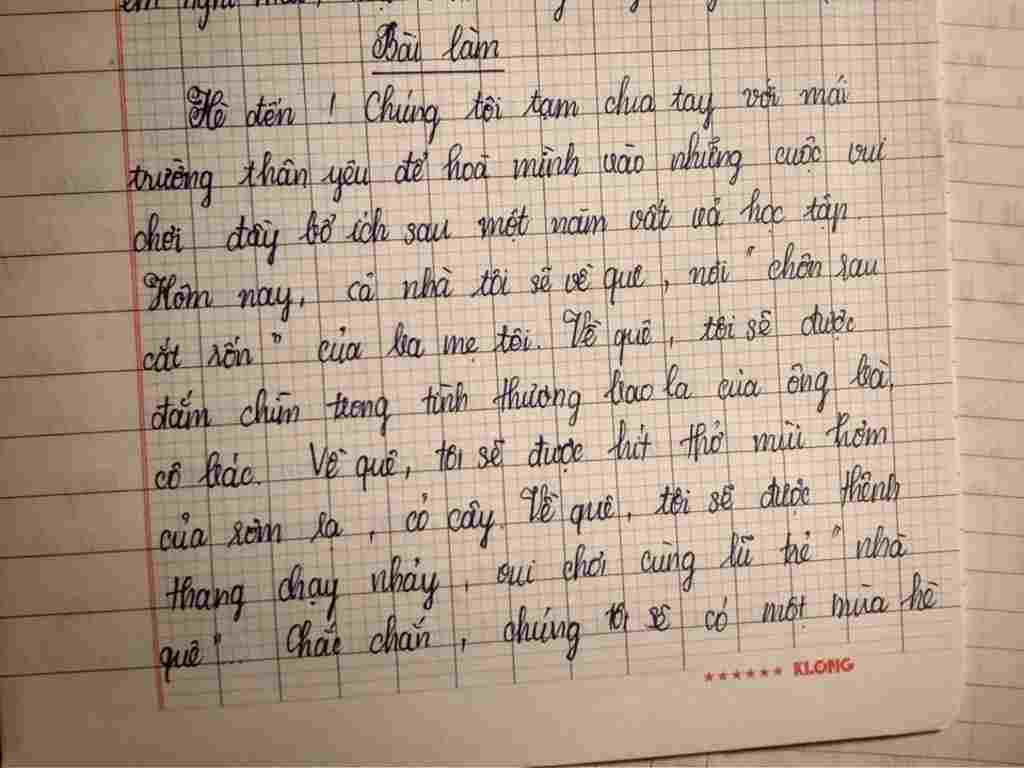 em nghỉ mát,
Bài làm
Hè đến ! Chúng tôi tạm chia tay với mái
trường thân yêu để hoà mình vào những cuộc vui
chơi đầy bổ ích sau một năm vất vả học tập.
Hôm nay, cả nhà tôi sẽ về quê, nơi " chôn rau
cắt rốn " của ba mẹ tôi. Về quê, tôi sẽ được
đắm chìm trong tình thương bao la của ông bà,
cô bác. Về quê, tôi sẽ được hít thở mùi hơm
của rơm rạ, cỏ cây. Về quê, tôi sẽ được thênh
thang chạy nhảy, vui chơi cùng lũ trẻ " nhà
quê"... Chắc chắn, chúng tôi sẽ có một mùa hè
****** KLONG